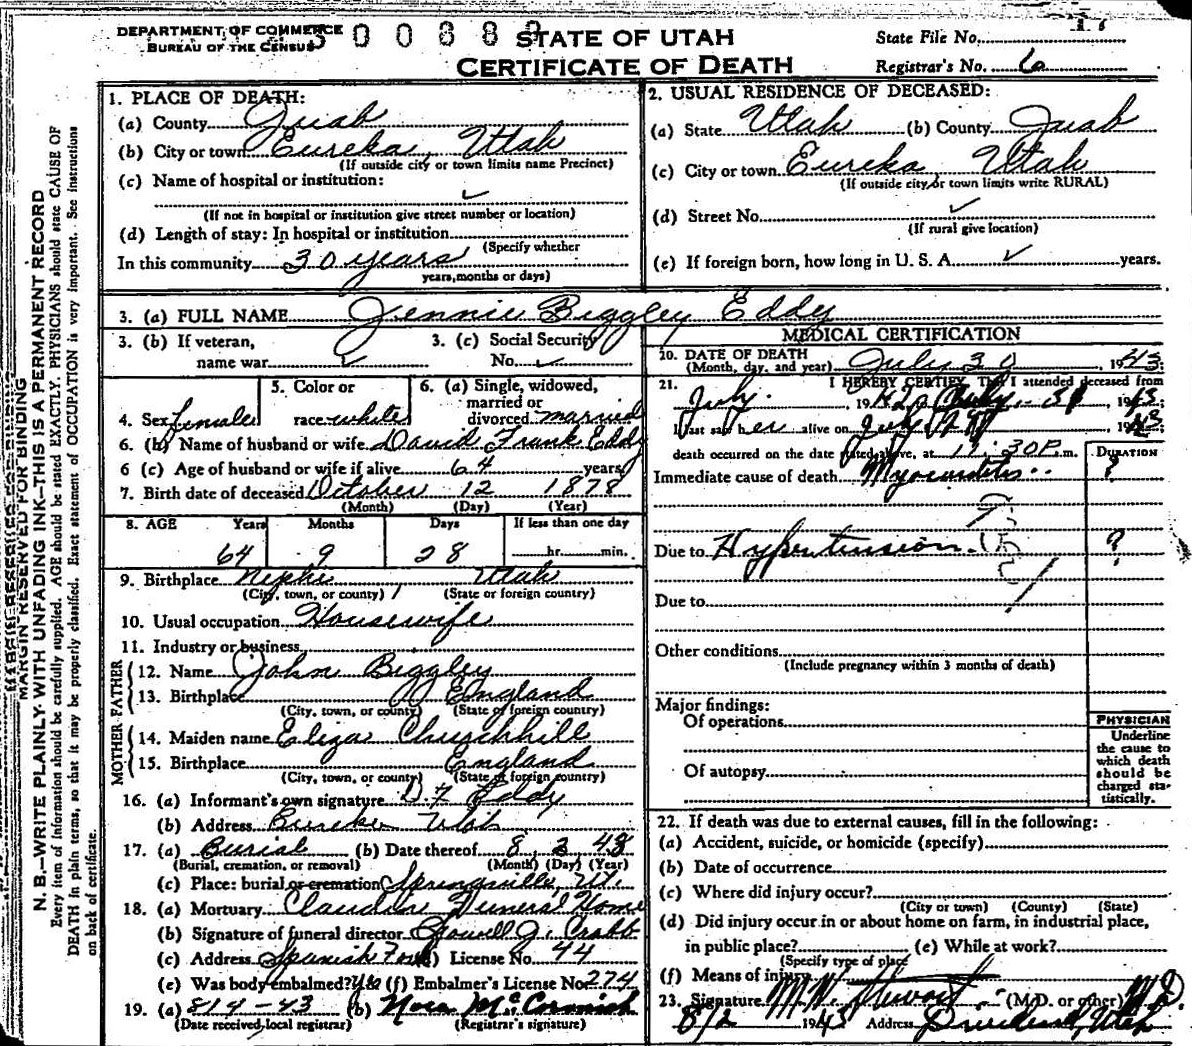 DEPARTMENT OF COMMERCE
BUREAU OF THE CENSUS
STATE OF UTAH
CERTIFICATE OF DEATH
State File No.
Registrar's No. 6
MARGIN RESERVED FOR BINDING
N. B.—WRITE PLAINLY WITH UNFADING INK—THIS IS A PERMANENT RECORD
Every item of information should be carefully supplied. AGE should be stated EXACTLY. PHYSICIANS should state CAUSE OF
DEATH in plain terms, so that it may be properly classified. Exact statement of OCCUPATION is very important. See instructions
on back of certificate.
1. PLACE OF DEATH:
(a) County Juab
(b) City or town Eureka, Utah
(If outside city or town limits name Precinct)
(c) Name of hospital or institution:
✓
(If not in hospital or institution give street number or location)
(d) Length of stay: In hospital or institution
(Specify whether
In this community 30 years
years, months or days)
2. USUAL RESIDENCE OF DECEASED:
(a) State Utah (b) County Juab
(c) City or town Eureka, Utah
(If outside city or town limits write RURAL)
(d) Street No. ✓
(If rural give location)
(e) If foreign born, how long in U. S. A. ✓ years.
3. (a) FULL NAME Jennie Biggley Eddy
3. (b) If veteran,
name war ✓
3. (c) Social Security
No. ✓
4. Sex female
5. Color or
race white
6. (a) Single, widowed,
married or
divorced married
6. (b) Name of husband or wife David Frank Eddy
6 (c) Age of husband or wife if alive 64 years
7. Birth date of deceased October 12 1878
(Month) (Day) (Year)
8. AGE Years Months Days If less than one day
64 9 28 hr. min.
9. Birthplace Nephi Utah
(City, town, or county) (State or foreign country)
10. Usual occupation Housewife
11. Industry or business
FATHER
12. Name John Biggley
13. Birthplace England
(City, town, or county) (State of foreign country)
MOTHER
14. Maiden name Eliza Churchhill
15. Birthplace England
(City, town, or county) (State of foreign country)
16. (a) Informant's own signature D. F. Eddy
(b) Address Eureka Utah
17. (a) Burial (b) Date thereof 8 2 43
(Burial, cremation, or removal) (Month) (Day) (Year)
(c) Place: burial or cremation Springville, Ut.
18. (a) Mortuary Claudin Funeral Home
(b) Signature of funeral director J. Crabb
(c) Address Spanish Fork (d) License No. 44
(e) Was body embalmed? Yes (f) Embalmer's License No. 274
19. (a) 8/4-43 (b) Nora McCormick
(Date received local registrar) (Registrar's signature)
MEDICAL CERTIFICATION
20. DATE OF DEATH
(Month, day, and year) July 30, 1943
21. I HEREBY CERTIFY, That I attended deceased from
July 19 July 30, 1943
I last saw her alive on July 1943
death occurred on the date stated above, at 11:30 P. m.
DURATION
Immediate cause of death Myocarditis ?
Due to Hypertension ?
Due to
Other conditions
(Include pregnancy within 3 months of death)
Major findings:
Of operations
Of autopsy
PHYSICIAN
Underline
the cause to
which death
should be
charged sta-
tistically.
22. If death was due to external causes, fill in the following:
(a) Accident, suicide, or homicide (specify)
(b) Date of occurrence
(c) Where did injury occur?
(City or town) (County) (State)
(d) Did injury occur in or about home on farm, in industrial place,
in public place? (e) While at work?
(Specify type of place
(f) Means of injury
23. Signature Stewart (M.D. or other) M.D.
8/2 1943 Address Dividend, Utah